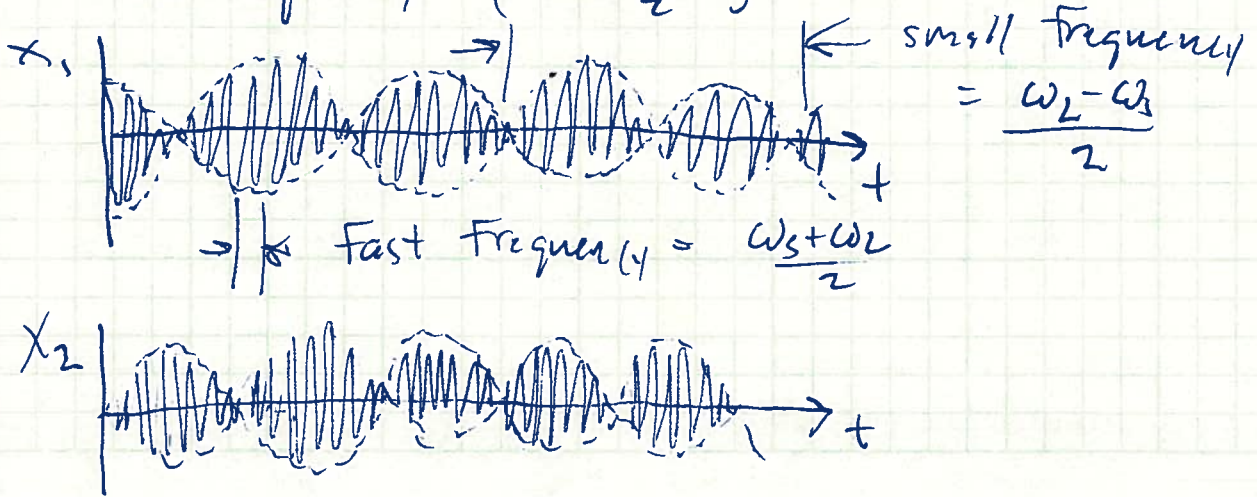 x₁
small frequency
= (ω₂-ω₃)/2
t
Fast Frequency = (ωs+ω₂)/2
X₂
t